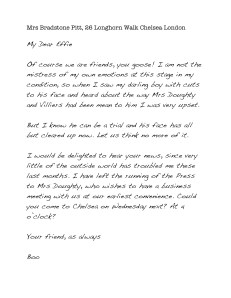 Mrs Bradstone Pitt, 26 Longhorn Walk Chelsea London
My Dear Effie
Of course we are friends, you goose! I am not the
mistress of my own emotions at this stage in my
condition, so when I saw my darling boy with cuts
to his face and heard about the way Mrs Doughty
and Villiers had been mean to him I was very upset.
But I know he can be a trial and his face has all
but cleared up now. Let us think no more of it.
I would be delighted to hear your news, since very
little of the outside world has troubled me these
last months. I have left the running of the Press
to Mrs Doughty, who wishes to have a business
meeting with us at our earliest convenience. Could
you come to Chelsea on Wednesday next? At 2
o'clock?
Your friend, as always
Boo